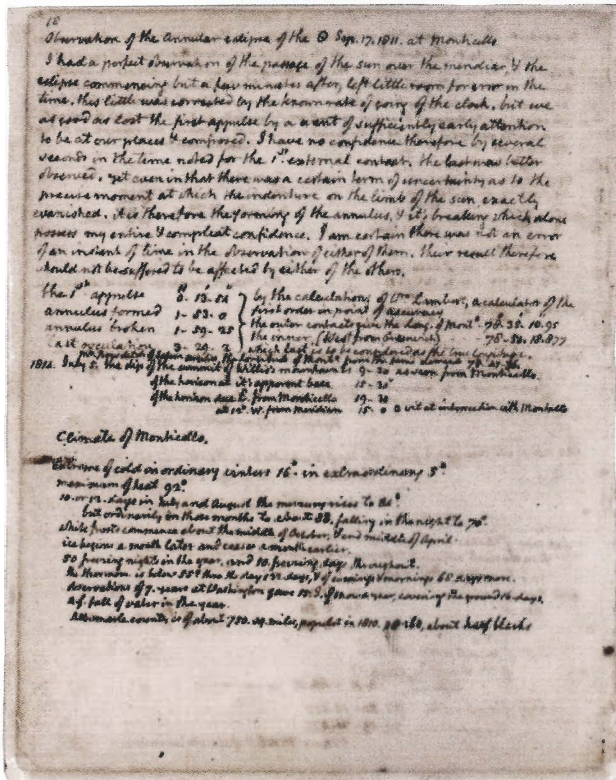 10
Observation of the Annular eclipse of the ☉ Sep. 17. 1811. at Monticello
I had a perfect observation of the passage of the sun over the meridian, & the
eclipse commencing but a few minutes after, left little room for error in the
time. this little was corrected by the known rate of going of the clock. but we
as good as lost the first appulse by a want of sufficiently early attention
to be at our places & composed. I have no confidence therefore by several
seconds in the time noted for the 1st external contact. the last was better
observed. yet even in that there was a certain term of uncertainty as to the
precise moment at which the indenture on the limb of the sun exactly
evanished. it is therefore the forming of the annulus, & it's breaking which alone
possess my entire & compleat confidence. I am certain there was not an error
of an instant of time in the observation of either of them. their result therefore
should not be suffered to be affected by either of the others.
the 1st appulse 0. 13. 54 by the calculations of Wm Lambert, a calculator of the
annulus formed 1. 53. 0 first order in point of accuracy
annulus broken 1. 59. 25 the outer contacts give the Long. of Mont° 78. 35. 10.95
last osculation 3. 29. 2 the inner. (West from Greenwich) 78. 50. 18.877
which last is to be considered as the true longitude.
the longitude of Mont°
1812. July 5. the dip of the summit of Willis's mountain is 9 - 30 as seen from Monticello.
of the horizon at it's apparent base 15 - 30
of the horizon due S. from Monticello 19 - 30
W. from Meridian 15 - 0
Climate of Monticello.
Extreme of cold in ordinary winters 16° in extraordinary 5°
maximum of heat 92°
10. or 12. days in July and August the mercury rises to
but ordinarily in those months to about 88. falling in the night to 70°
white frosts commence about the middle of October, & end middle of April
ice begins a month later and ceases a month earlier.
50 freezing nights in the year, and 10. freezing days throughout.
the thermom. is below 55° thro the day 120 days, & of evenings & mornings 68 days more.
observations of 7. years at Washington gave of snow a year, covering the ground 16 days.
4 f. fall of water in the year.
Albemarle county is of about 750. sq. miles, popul in 1810. about half blacks